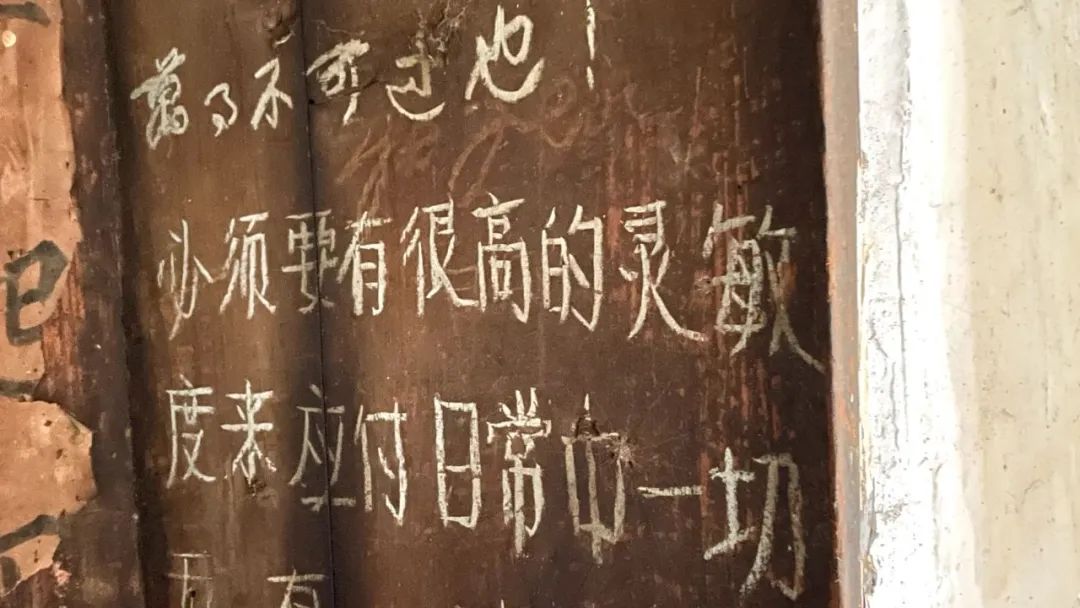 萬々不可过也!
必须要有很高的灵敏
度来应付日常中一切
有